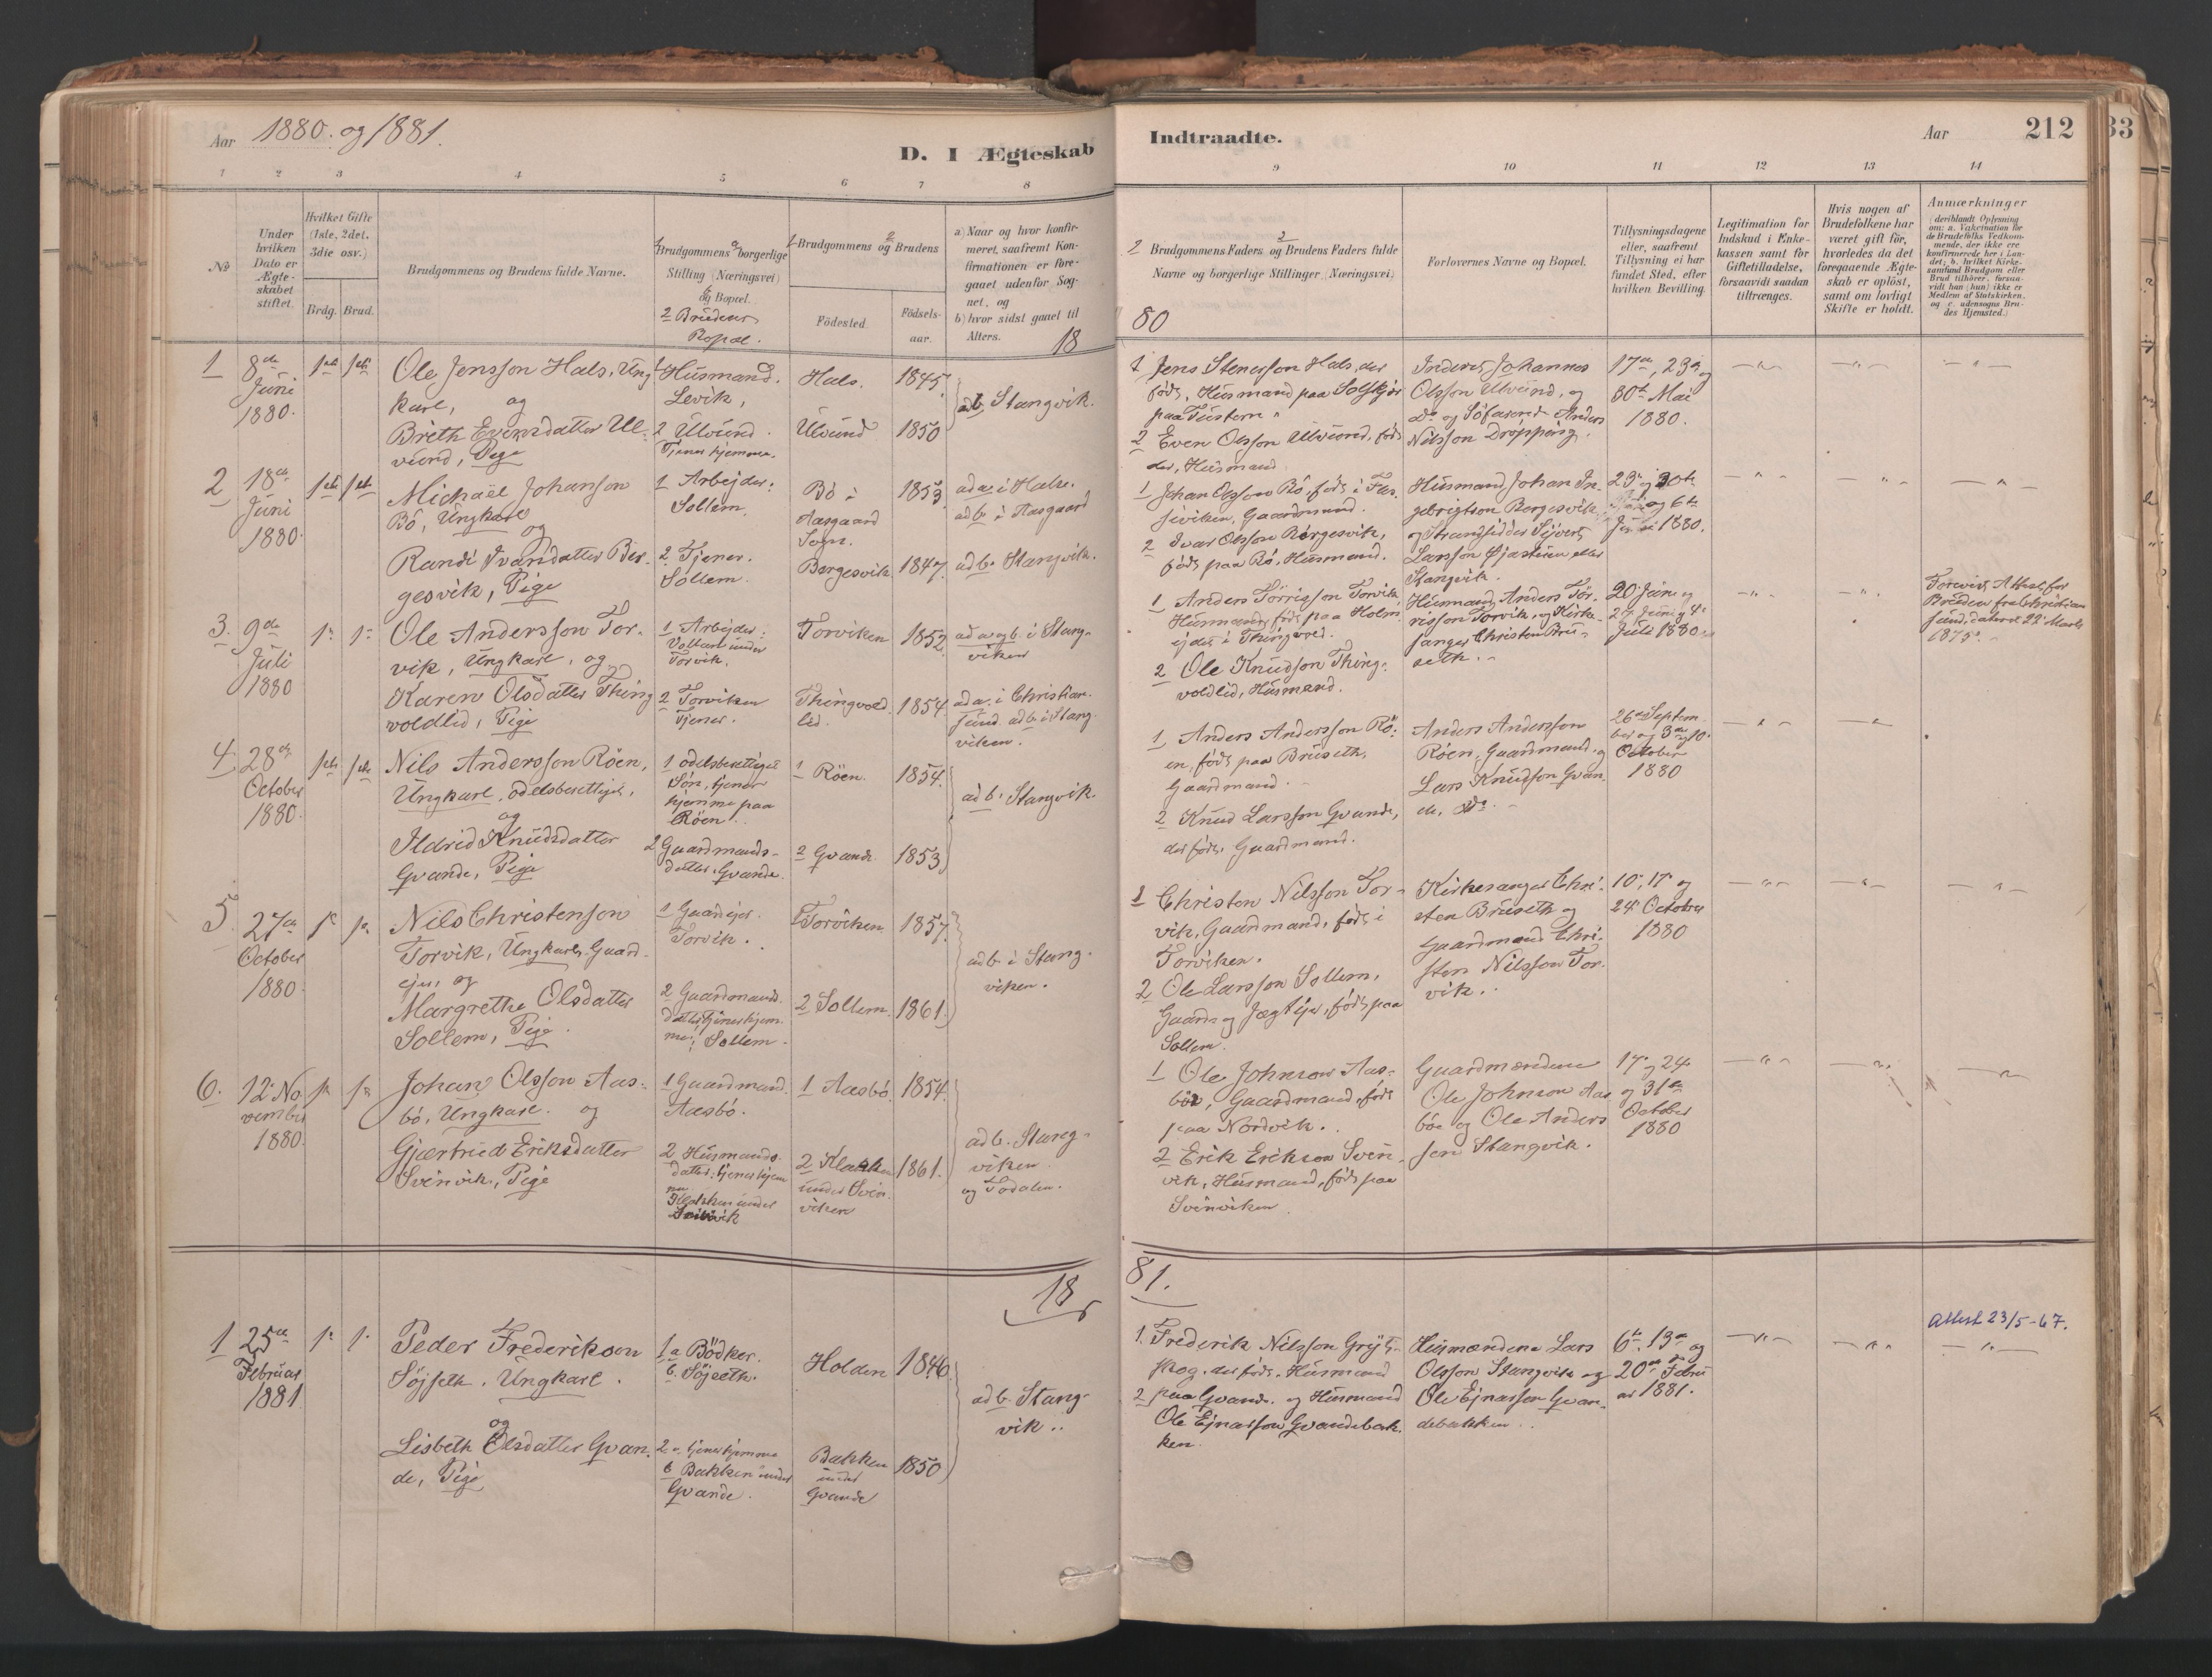 Aar 1880. og 1881.
D. I Ægteskab
Indtraadte.
Aar
212
33
1 2 3 4 5 6 7 8
9 10 11 12 13 14
No
Under hvilken Dato er Ægteskabet stiftet.
Hvilket Gifte (1ste, 2det, 3die osv.)
Brdg. Brud.
Brudgommens og Brudens fulde Navne.
1 Brudgommens a borgerlige
Stilling (Næringsvei)
b og Bopæl.
2 Brudens
Bopæl.
1 Brudgommens og 2 Brudens
Födested.
Födsels-
aar.
a) Naar og hvor konfir-
meret, saafremt Kon-
firmationen er fore-
gaaet udenfor Sog-
net, og
b) hvor sidst gaaet til
Alters.
18
1 Brudgommens Faders og 2 Brudens Faders fulde
Navne og borgerlige Stillinger (Næringsvei)
80
Forlovernes Navne og Bopæl.
Tillysningsdagene
eller, saafremt
Tillysning ei har
fundet Sted, efter
hvilken Bevilling.
Legitimation for
Indskud i Enke-
kassen samt for
Giftetilladelse,
forsaavidt saadan
tiltrænges.
Hvis nogen af
Brudefolkene har
været gift för,
hvorledes da det
foregaaende Ægte-
skab er oplöst,
samt om lovligt
Skifte er holdt.
Anmærkninger
(deriblandt Oplysning
om: a. Vakcination for
de Brudefolks Vedkom-
mende, der ikke ere
konfirmerede her i Lan-
det; b. hvilket Kirke-
samfund Brudgom eller
Brud tilhörer, forsaa-
vidt han (hun) ikke er
Medlem af Statskirken,
og c. udensogns Bru-
des Hjemsted.)
1 8de Juni 1880.
Ole Jensson Hals, Ung
karl, og
Brith Evensdatter Ul-
vund, Pige
1 Husmand.
Levik,
2 Ulvund.
Tjener hjemme.
Hals. 1845
Ulvund 1850
ad b Stangvik.
1 Jens Stenersson Hals, der
föds, Husmand paa Solskjer
paa Tustern
2 Even Olsson Ulvund, föds
der, Husmand.
Inderst Johannes
Olsson Ulvund, og
Do og Söfarend. Anders
Nilsson Dröpping.
17de, 23de og
30te Mai
1880.
2 18de Juni 1880.
Michaël Johanson
Bö, Ungkarl
og
Randi Ivarsdatter Bör-
gesvik, Pige
1 Arbejder.
Sollem.
2. Tjener.
Sollem.
Bö i
Aasgaard
Sogn. 1853
Börgesvik 1847.
ad a. i Halse.
ad b. i Aasgaard
ad b. Stangvik.
1 Johan Olsson Bö, föds i
Gaardmand.
2 Ivar Olsson Börgesvik,
föds paa Bö, Husmand.
Husmand Johan In-
gebrigtson Bergesvik
og Strandsidder Sivert
Larsson
Stangvik.
23de og 30te
og 6te
Juni 1880.
3. 9de Juli 1880
Ole Andersson Tor-
vik, Ungkarl, og
Karen Olsdatter Thing
voldlid, Pige
1 Arbejder:
under
Torvik.
2 Torviken
Tjener.
Torviken 1852
Thingvold
lid. 1854
ad a. og b. i Stang-
viken
ad a. i Christian-
sund ad b. i Stang-
viken.
1 Anders Torrisson Torvik
Husmand, föds paa Holm
i Thingvold.
2 Ole Knudson Thing-
voldlid, Husmand.
Husmand Anders Tor-
risson Torvik, og Kirke-
sanger Christen Bru-
seth.
20de Juni og
27. Juni og 4de
Juli 1880
Forevist Attest for
Bruden fra Christian
sund, dateret 22 Marts
1875.
4 28de October 1880.
Nils Andersson Röen,
Ungkarl, odelsberettiget,
og
Ildrid Knudsdatter
Gvande, Pige
1 odelsberettiget
Sön, tjener
hjemme paa
Röen.
2 Gaardmands-
datter, Gvande.
1 Röen. 1854.
2 Gvande. 1853
ad b. Stangvik.
1 Anders Andersson Rö-
en, föds paa Bruseth,
Gaardmand.
2 Knud Larsson Gvande,
der föds. Gaardmand.
Anders Andersson
Röen, Gaardmand og
Lars Knudson Gvan
de, do.
26de Septem-
ber og 3de og 10.
October
1880
5. 27de October 1880
Nils Christenson
Torvik, Ungkarl, Gaard-
ejer, og
Margrethe Olsdatter
Sollem, Pige.
1 Gaardejer.
Torvik.
2 Gaardmands-
datter, tjener hjem-
me; Sollem.
1 Torviken 1857.
2 Sollem. 1861.
ad b. i Stang-
viken.
1 Christen Nilsson Tor-
vik, Gaardmand, föds i
Torviken.
2 Ole Larsson Sollem,
Gaard- og Jægtejer, föds paa
Sollem.
Kirkesanger Chri-
sten Bruseth og
Gaardmand Chri-
sten Nilsson Tor-
vik.
10. 17 og
24. October
1880
6. 12. November 1880.
Johan Olsson Aas-
bö, Ungkarl. og
Gjertrud Eriksdatter
Svinvik, Pige
1 Gaardmand
Aasbö.
2 Husmands-
datter, tjener hjem
me
Klakken under
Svinvik
1 Aasbö. 1854.
2 Klakken
under Svin-
viken 1861.
ad b. Stang-
viken
og Todalen.
1 Ole Johnson Aas-
böe, Gaardmand, föds
paa Nordvik.
2 Erik Erikson Svin-
vik, Husmand, föds paa
Svinviken
Gaardmændene
Ole Johnson Aas
böe og Ole Anders
sen Stangvik.
17. og 24.
og 31te
October
1880
18
81.
1 25de Februar 1881
Peder Frederikson
Söjseth. Ungkarl.
og
Lisbeth Olsdatter Gvan-
de, Pige
1 a Bödker.
b. Söjseth.
2 a. tjener hjemme
b Bakken under
Gvande.
Holden 1846
Bakken
under
Gvande 1850
ad b. Stang-
vik.
1. Frederik Nilsson
der föds. Husmand
2 paa Gvande. og Husmand
Ole Ejnarsson Gvandebak-
ken
Husmændene Lars
Olsson Stangvik og
Ole Ejnarsson Gvan-
debakken.
6te, 13de og
20de Febru
ar 1881.
Attest 23/5-67.